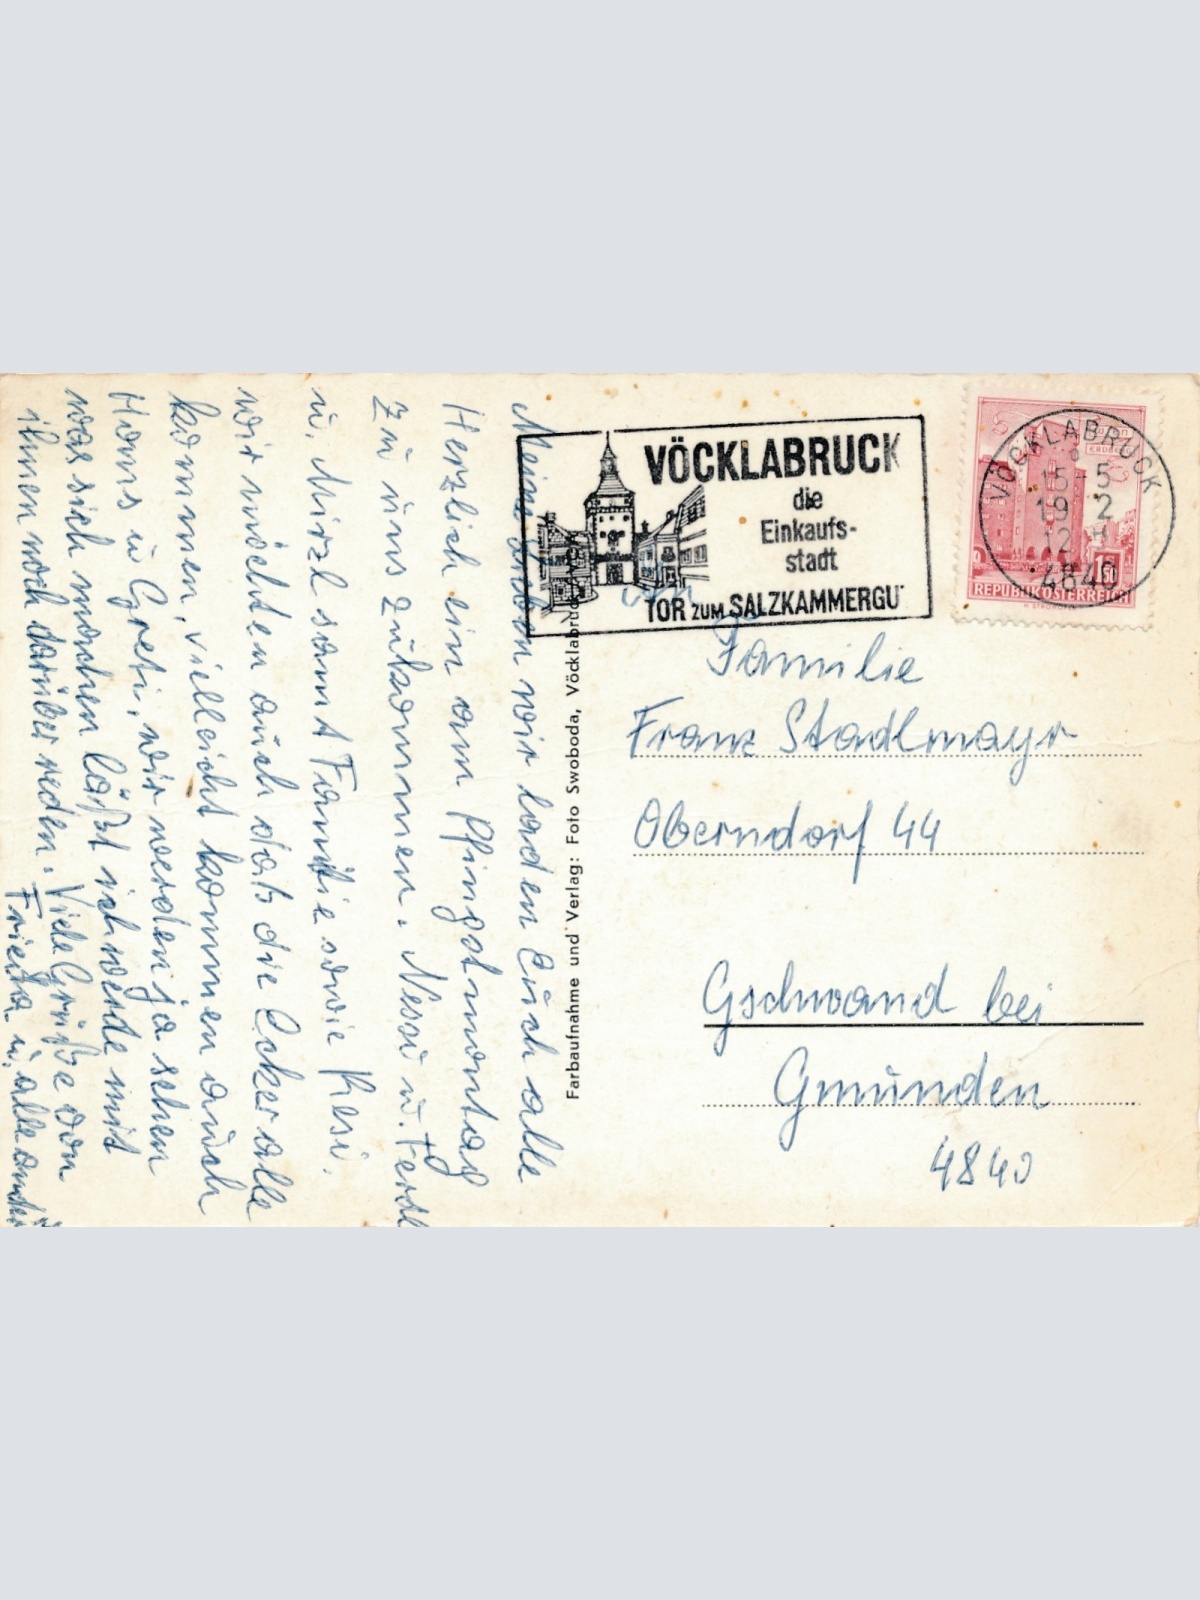 Meine Lieben wir laden Euch alle
Herzlich ein am Pfingstmontag
zu uns zukommen. u. Ferdl
u. Mirzl samt Familie sowie Resi.
wir möchten auch daß die Ecker alle
kommen, vielleicht kommen auch
Hans u Greti, wir werden ja sehen
was sich machen läßt ich werde mit
ihnen noch darüber reden. Viele Grüße von
Frieda u. alle
Farbaufnahme und Verlag: Foto Swoboda, Vöcklabruck
VÖCKLABRUCK
die
Einkaufs-
stadt
TOR ZUM SALZKAMMERGU
VÖCKLABRUCK
15-5
19 2
12 H
4840
1.50
REPUBLIK ÖSTERREICH
An
Familie
Franz Stadlmayr
Oberndorf 44
Gschwand bei
Gmunden
4840